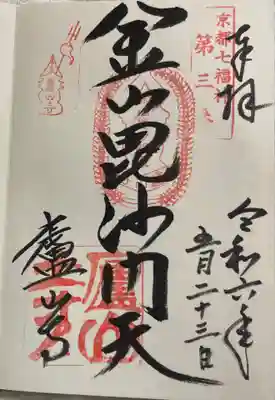 奉拝
京都七福神
第三
令和六年
五月二十三日
金山毘沙門天
廬山寺